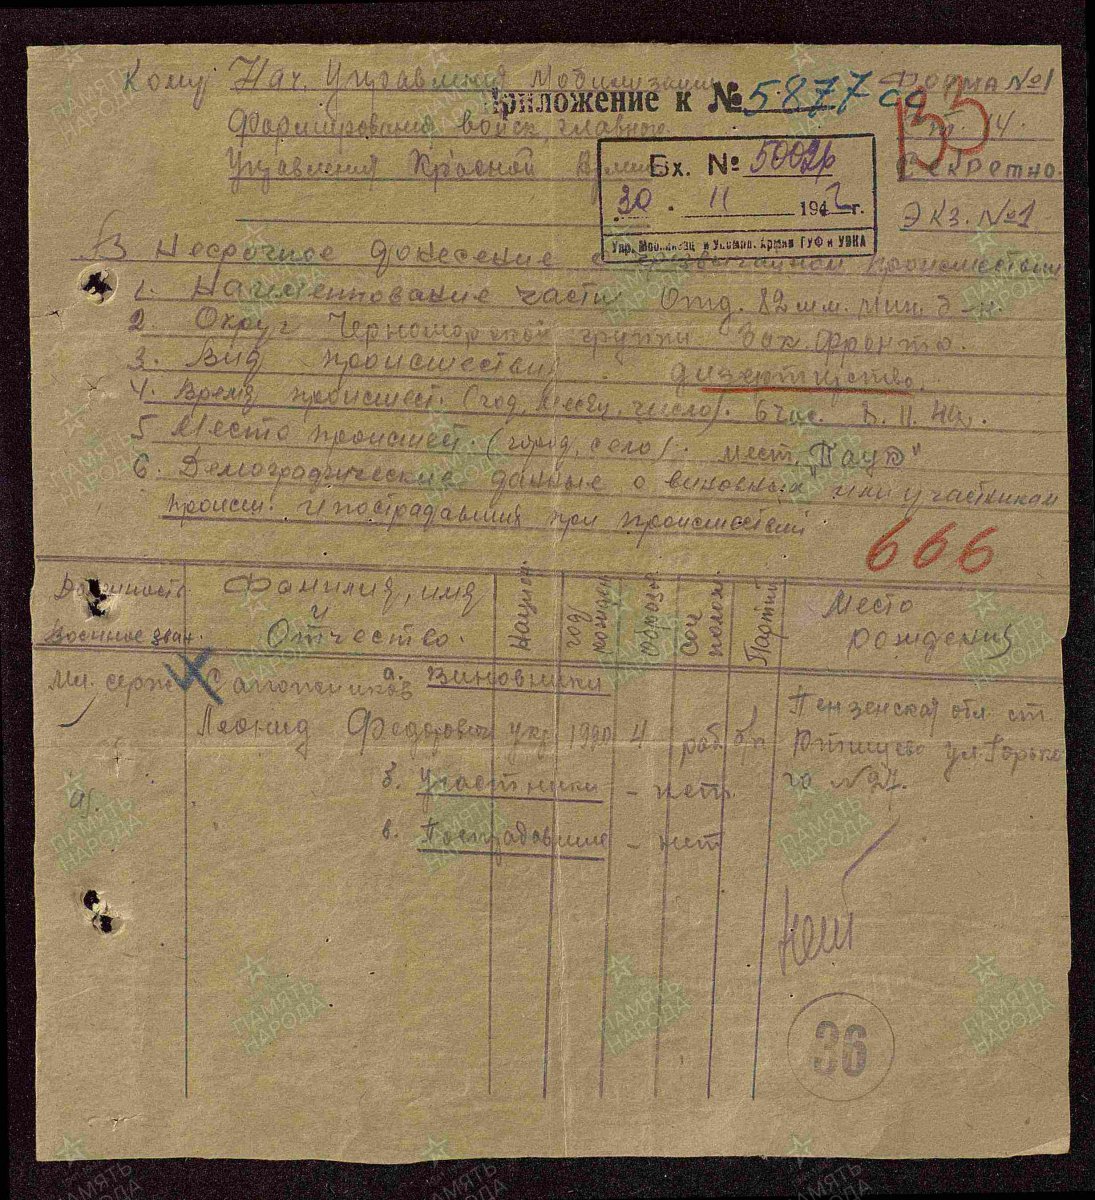 Кому Нач. Управления Мобилизации
Форма №1
Приложение к № 5877 сс
Формирования войск главного
Управления Красной Армии
к ст. 14.
133
Секретно.
Вх. № 50026
30. 11 1942 г.
Экз. №1
Упр. Мобилизац. и Укомпл. Армии ГУФ и УВКА
Внесрочное донесение о чрезвычайном происшествии
1. Наименнование части Отд. 82 мм. Мин. б-н.
2. Округ Черноморской группы Зак. Фронта.
3. Вид происшествия дизертирство.
4. Время происшест. (год, месяц, число). 6 час.
5. Место происшест. (город, село). мест. "Пауэ"
6. Демографические данные о виновных или участниках
происш. и пострадавших при происшествии
666
Должность
Военное зван.
Фамилия, имя
и
Отчество.
Национ.
год рожден.
образов.
соц полож.
Партий
Место
рождения
Мл. серж. Сапожников а. Виновники
Леонид Федорович укр 1920 4 раб б/п
Пензенская обл. ст.
Ртищево ул. Горько
го №27.
б. Участники – нет.
а).
в. Пострадавшие – нет
36
ПАМЯТЬ
НАРОДА